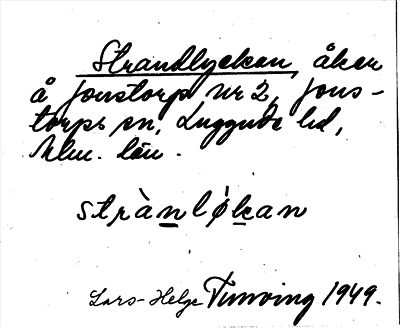 Strandlyckan, åker
å Jonstorp nr 2, Jons-
torps sn, Luggude hd,
Mlm. län.
stràn̲lǿk̲an
Lars-Helge Tunving 1949.